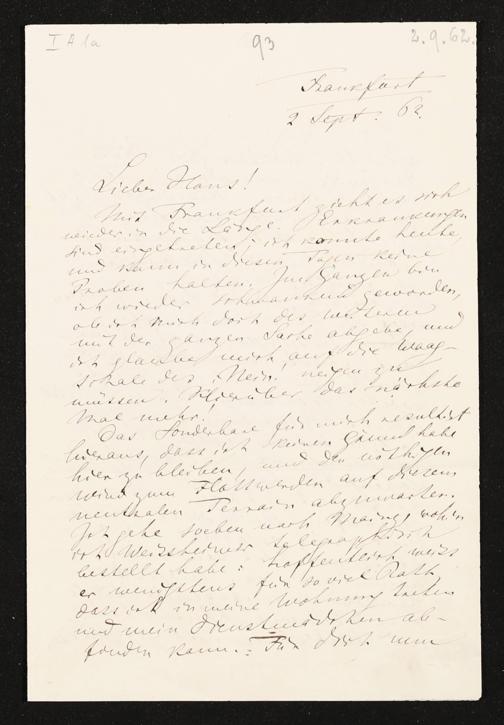 I A 1a
93
2.9.62.
Frankfurt
2 Sept. 62.
Lieber Hans!
Mit Frankfurt zieht es sich
wieder in die Länge. Erkrankungen
sind eingetreten; ich konnte heute
und kann in diesen Tagen keine
Proben halten. Im Ganzen bin
ich wieder schwankend geworden,
ob ich mich doch des weiteren
mit der ganzen Sache abgebe, und
ich glaube mich auf die Waag-
schale des „Nein“ neigen zu
müssen. Hierüber das nächste
Mal mehr!
Das Sonderbare für mich resultirt
hieraus, dass ich keinen Grund habe
hier zu bleiben, und den nöthigen
Wind zum Flottwerden auf diesem
neutralen Terrain abzuwarten.
Ich gehe soeben nach Mainz, wohin
ich Weissheimer telegraphisch
bestellt habe: hoffentlich weiss
er wenigstens für so viel Rath
dass ich in meine Wohnung treten
und mein Dienstmädchen ab-
finden kann.: Für dich nun